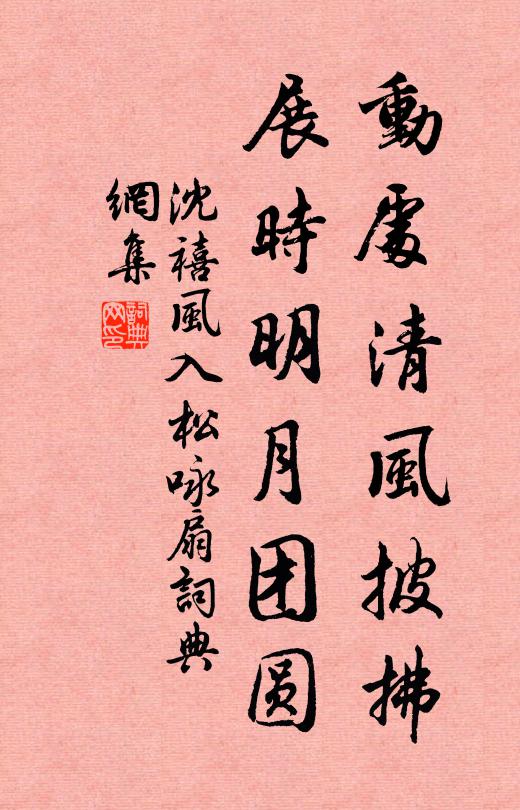 動處清風披拂
展時明月团圆
沈禧風入松咏扇詞典
網集
詞典
网印